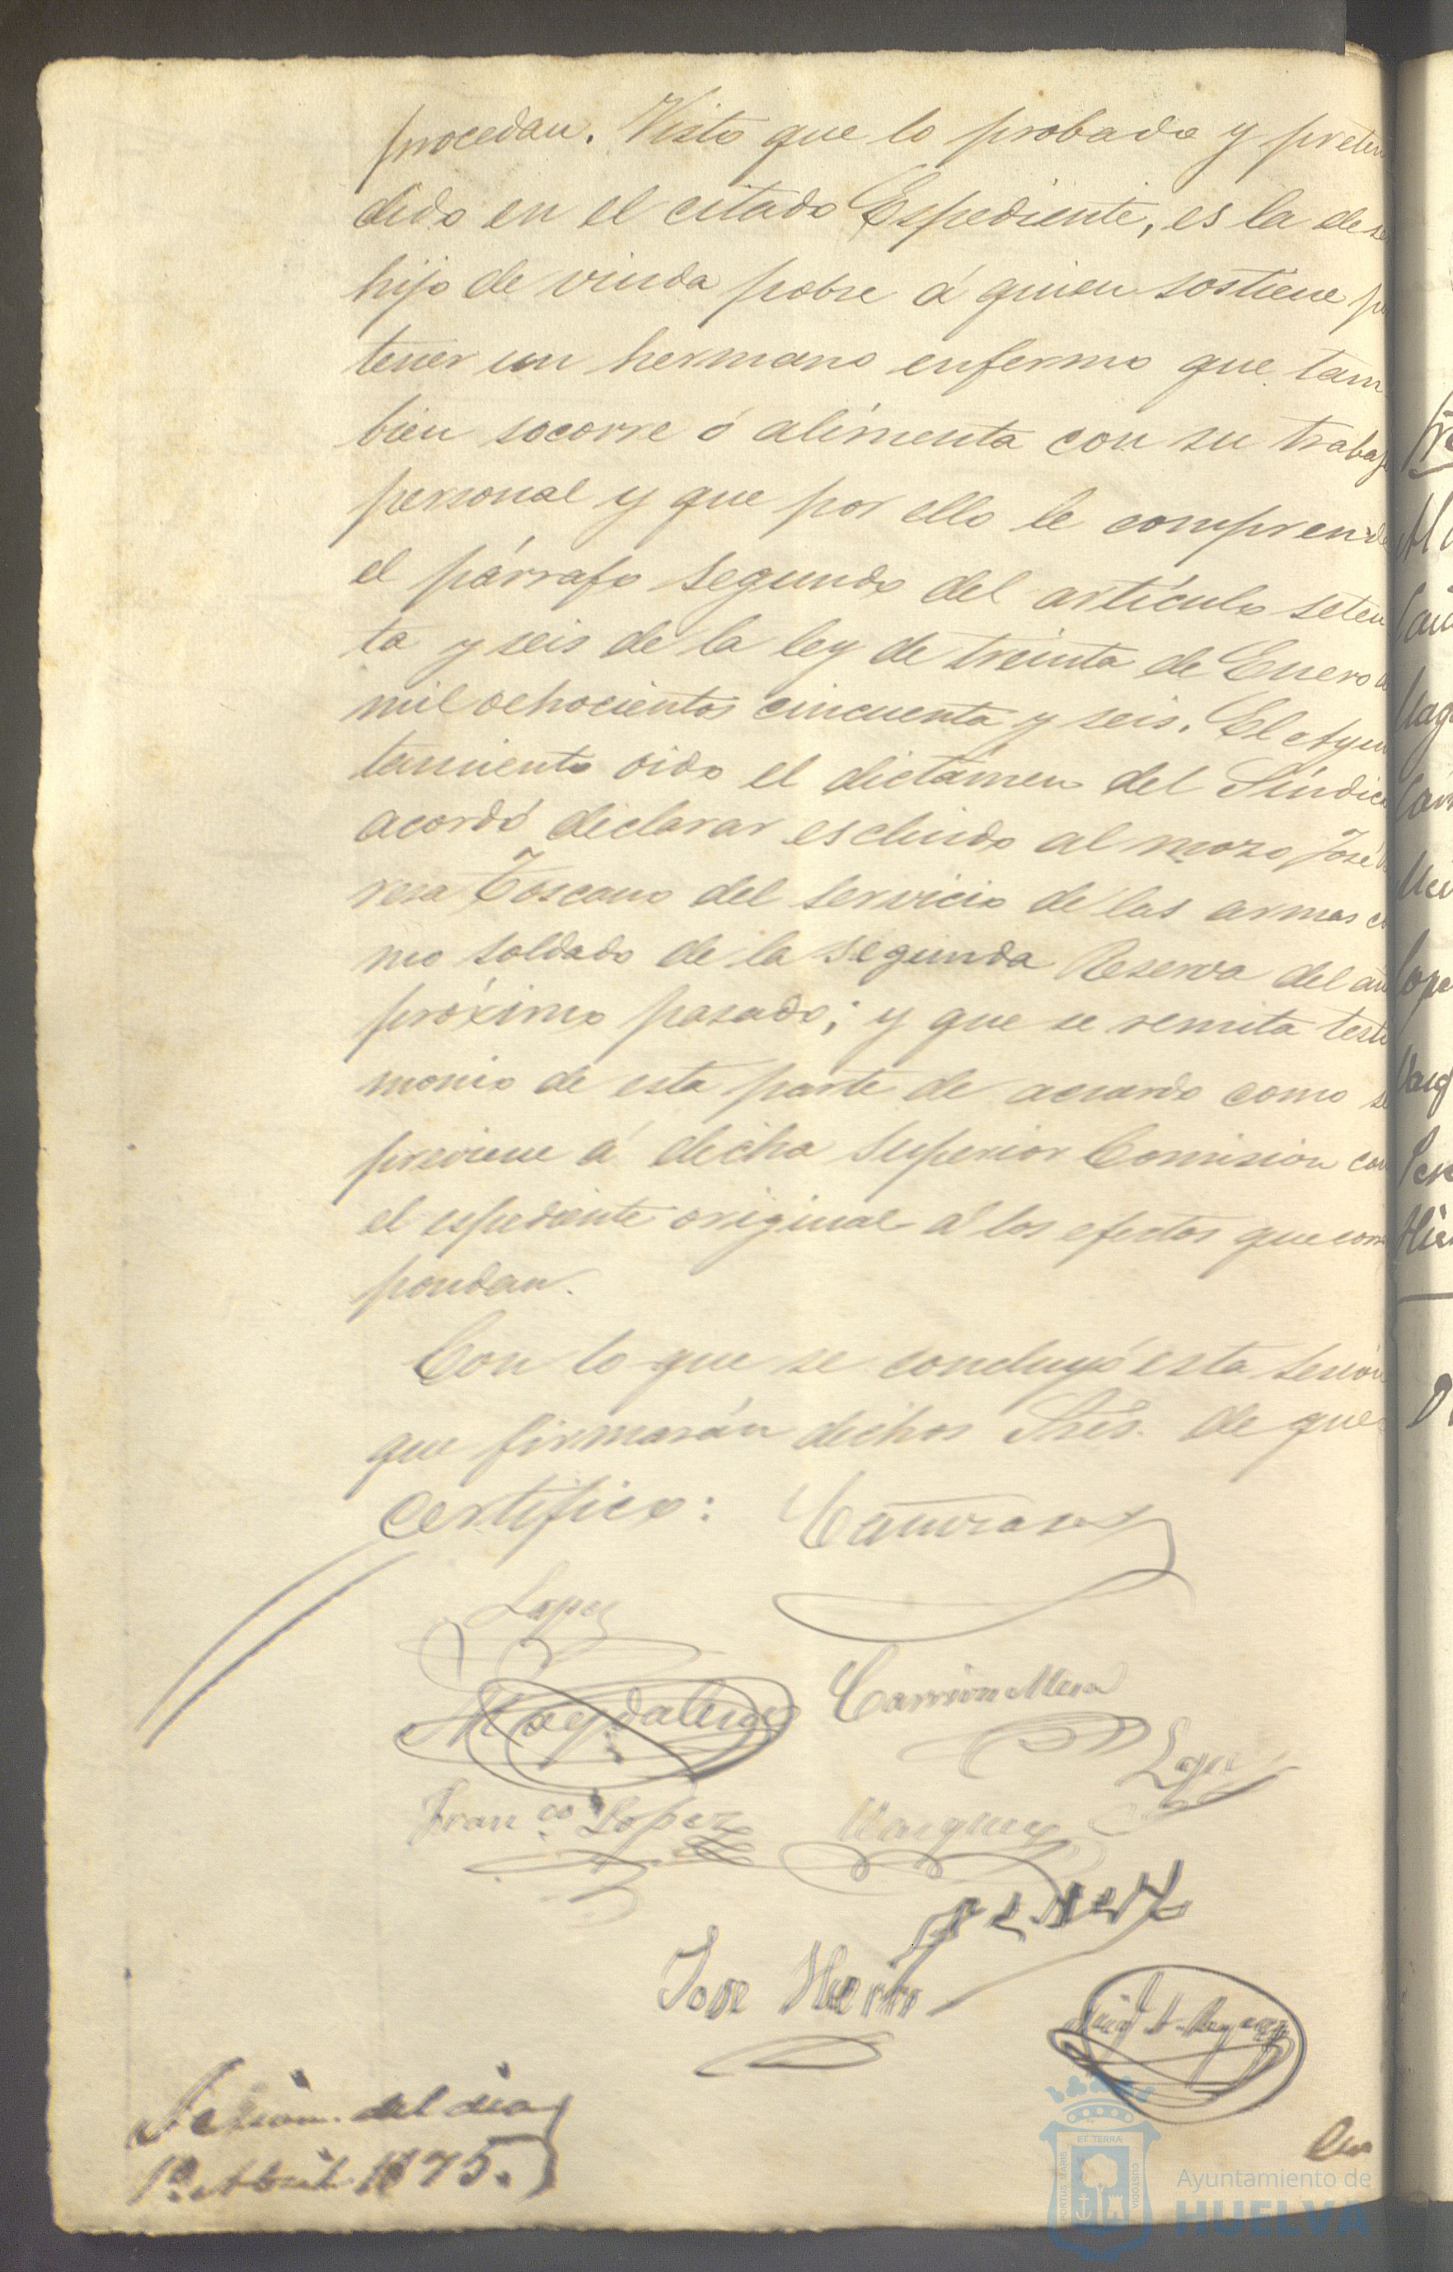 procedan. Visto que lo probado y preten
dido en el citado Espediente, es la de se
hijo de viuda pobre á quien sostiene p
tener un hermano enfermo que tam
bien socorre ó alimenta con su trabajo
personal y que por ello le comprende
el párrafo segundo del artículo seten
ta y seis de la ley de treinta de Enero de
mil ochocientos cincuenta y seis. El Ayun
tamiento oido el dictámen del Síndico
acordó declarar escluido al mozo José
rera Toscano del servicio de las armas co
mo soldado de la segunda Reserva del añ
próximo pasado; y que se remita testi
monio de esta parte de acuerdo como se
previene á dicha Superior Comision con
el espediente original á los efectos que corres
pondan.
Con lo que se concluyó esta sesión
que firmarán dichos Sres. de que
certifico:
Lopez
Magdalena
Carrion Mera
Lopez
Fran.co Lopez
Vazquez
Perez
Jose Hierro
Sesion del dia
1º Abril 1875.
En
PORTUS MARIS
ET TERRA
CUSTODIA
Ayuntamiento de
HUELVA